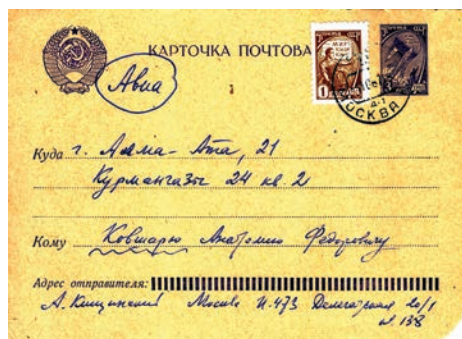 КАРТОЧКА ПОЧТОВА
Авиа
1
МОСКВА
Куда г. Алма-Ата, 21
Курмангазы 24 кв. 2
Кому Ковшарю Анатолию Федоровичу
Адрес отправителя:
А. Москва И-473 Делегатская 20/1
138